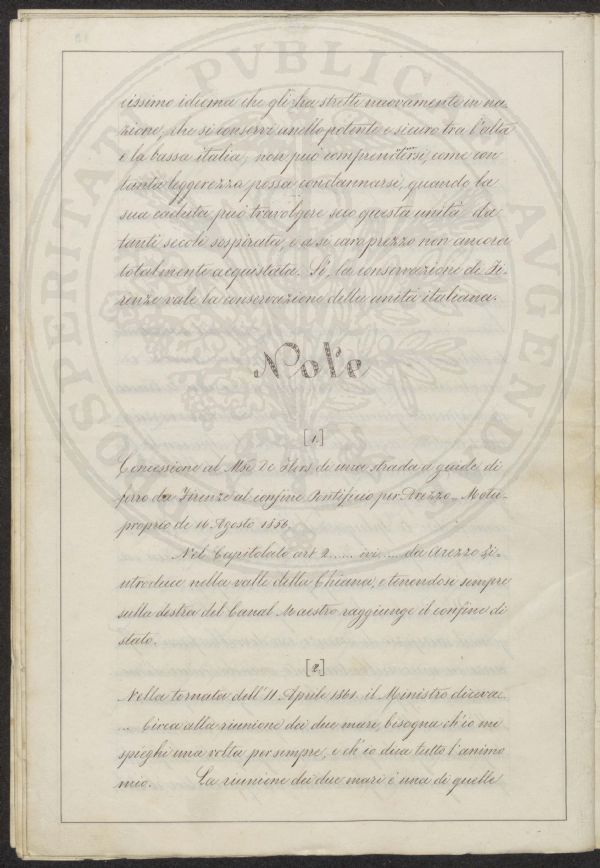 cissimo idioma che gli ha stretti nuovamente in na-
zione, che si conservi anello potente e sicuro tra l'alta
e la bassa italia, non può comprendersi, come con
tanta leggerezza possa condannarsi, quando la
sua caduta può travolgere seco questa unità da
tanti secoli sospirata, e a sì caro prezzo non ancora
totalmente acquistata. Sì, la conservazione di Fi-
renze vale la conservazione della unità italiana.
Note
[1.]
Concessione al Mse. De di una strada a guide di
ferro da Firenze al confine Pontificio per Arezzo Motu-
proprio de 16. Agosto 1856.
Nel Capitolato art 2...... ivi.... da Arezzo s'i-
ntroduce nella valle della Chiana, e tenendosi sempre
sulla destra del Canal Maestro raggiunge il confine di
stato.
[2.]
Nella tornata dell'11. Aprile 1861. il Ministro diceva...
... Circa alla riunione dei due mari, bisogna ch'io mi
spieghi una volta per sempre, e ch'io dica tutto l'animo
mio. La riunione dei due mari è una di quelle
PVBLICAE
PROSPERITATIS
AVGENDAE